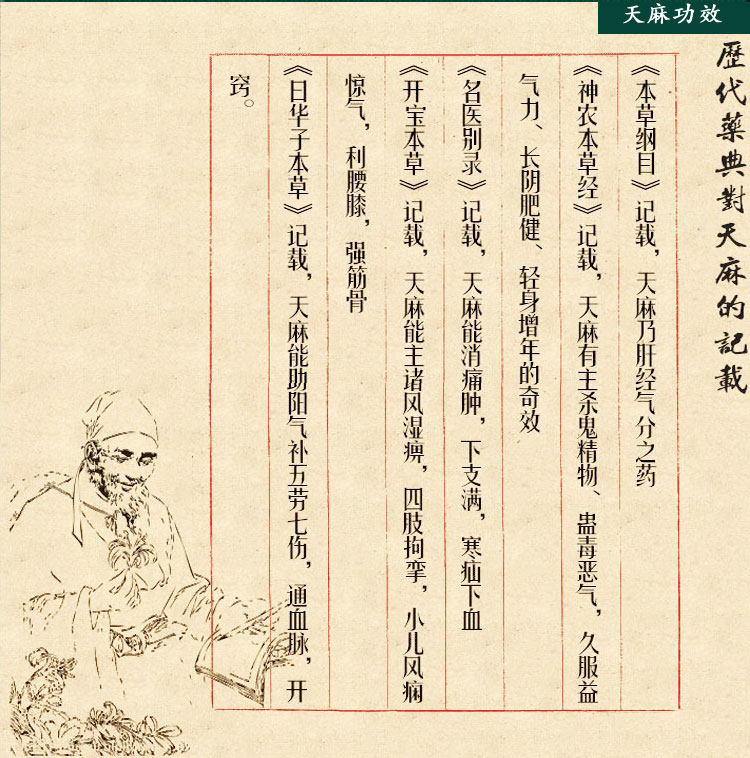 天麻功效
歷代藥典對天麻的記載
《本草纲目》记载，天麻乃肝经气分之药
《神农本草经》记载，天麻有主杀鬼精物、蛊毒恶气，久服益
气力、长阴肥健、轻身增年的奇效
《名医别录》记载，天麻能消痛肿，下支满，寒疝下血
《开宝本草》记载，天麻能主诸风湿痹，四肢拘挛，小儿风痫
惊气，利腰膝，强筋骨
《日华子本草》记载，天麻能助阳气补五劳七伤，通血脉，开
窍。